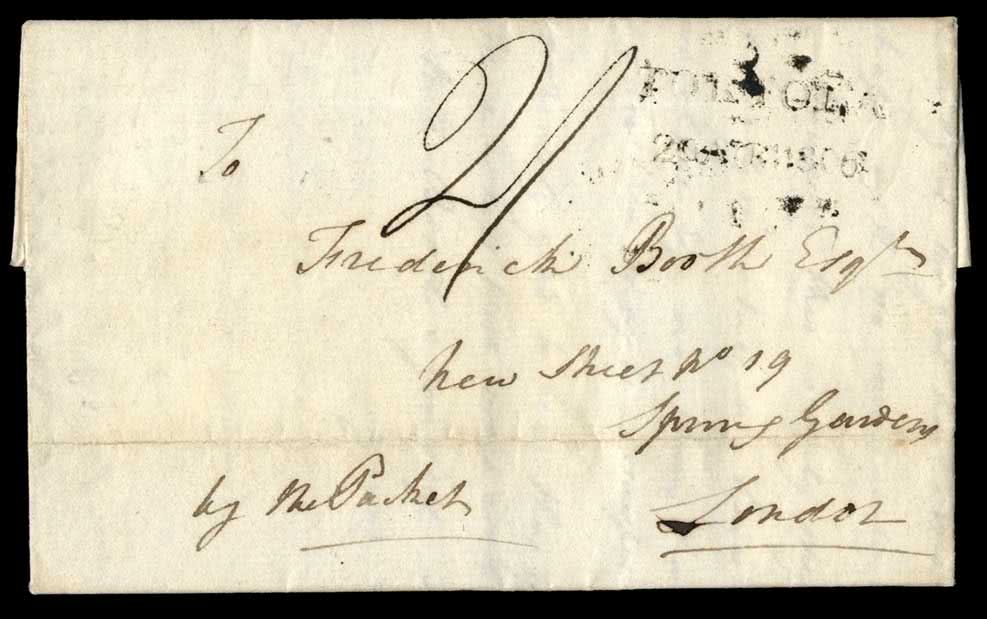 2/
TORTOLA
1806
To
Frederick Booth Esqr
New Street No 19
Spring Gardens
by the Packet
London